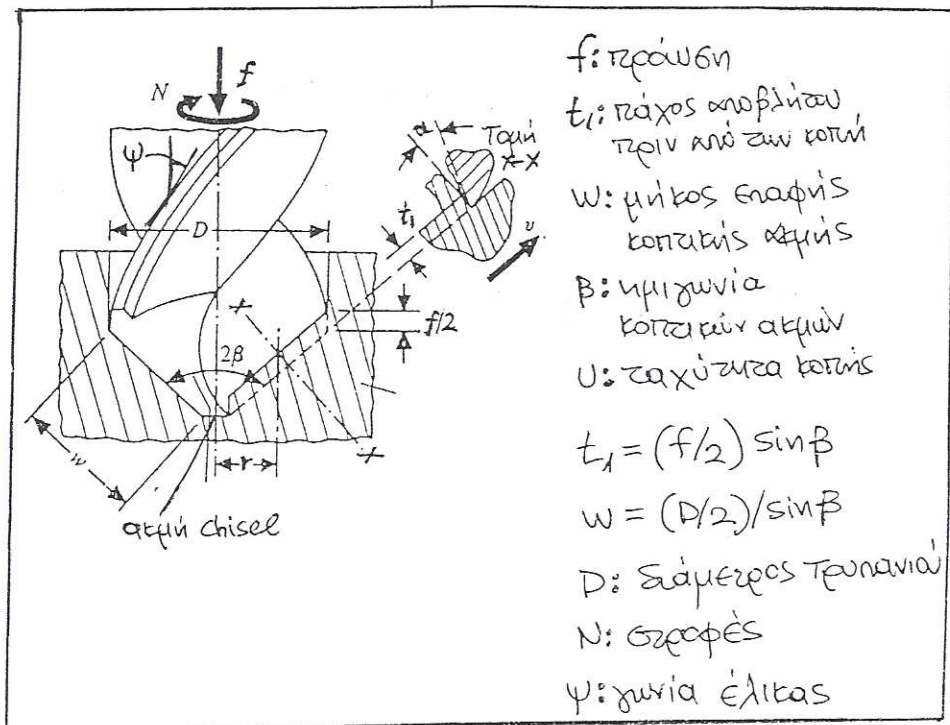 f
N
ψ
α
Τομή
x-x
D
t₁
υ
x
f/2
2β
w
r
x
ακμή chisel
f: πρόωση
t₁: πάχος αποβλήτου
πριν από την κοπή
w: μήκος επαφής
κοπτικής ακμής
β: ημιγωνία
κοπτικών ακμών
υ: ταχύτητα κοπής
t₁ = (f/2) sinβ
w = (D/2)/sinβ
D: διάμετρος τρυπανιού
N: στροφές
ψ: γωνία έλικας